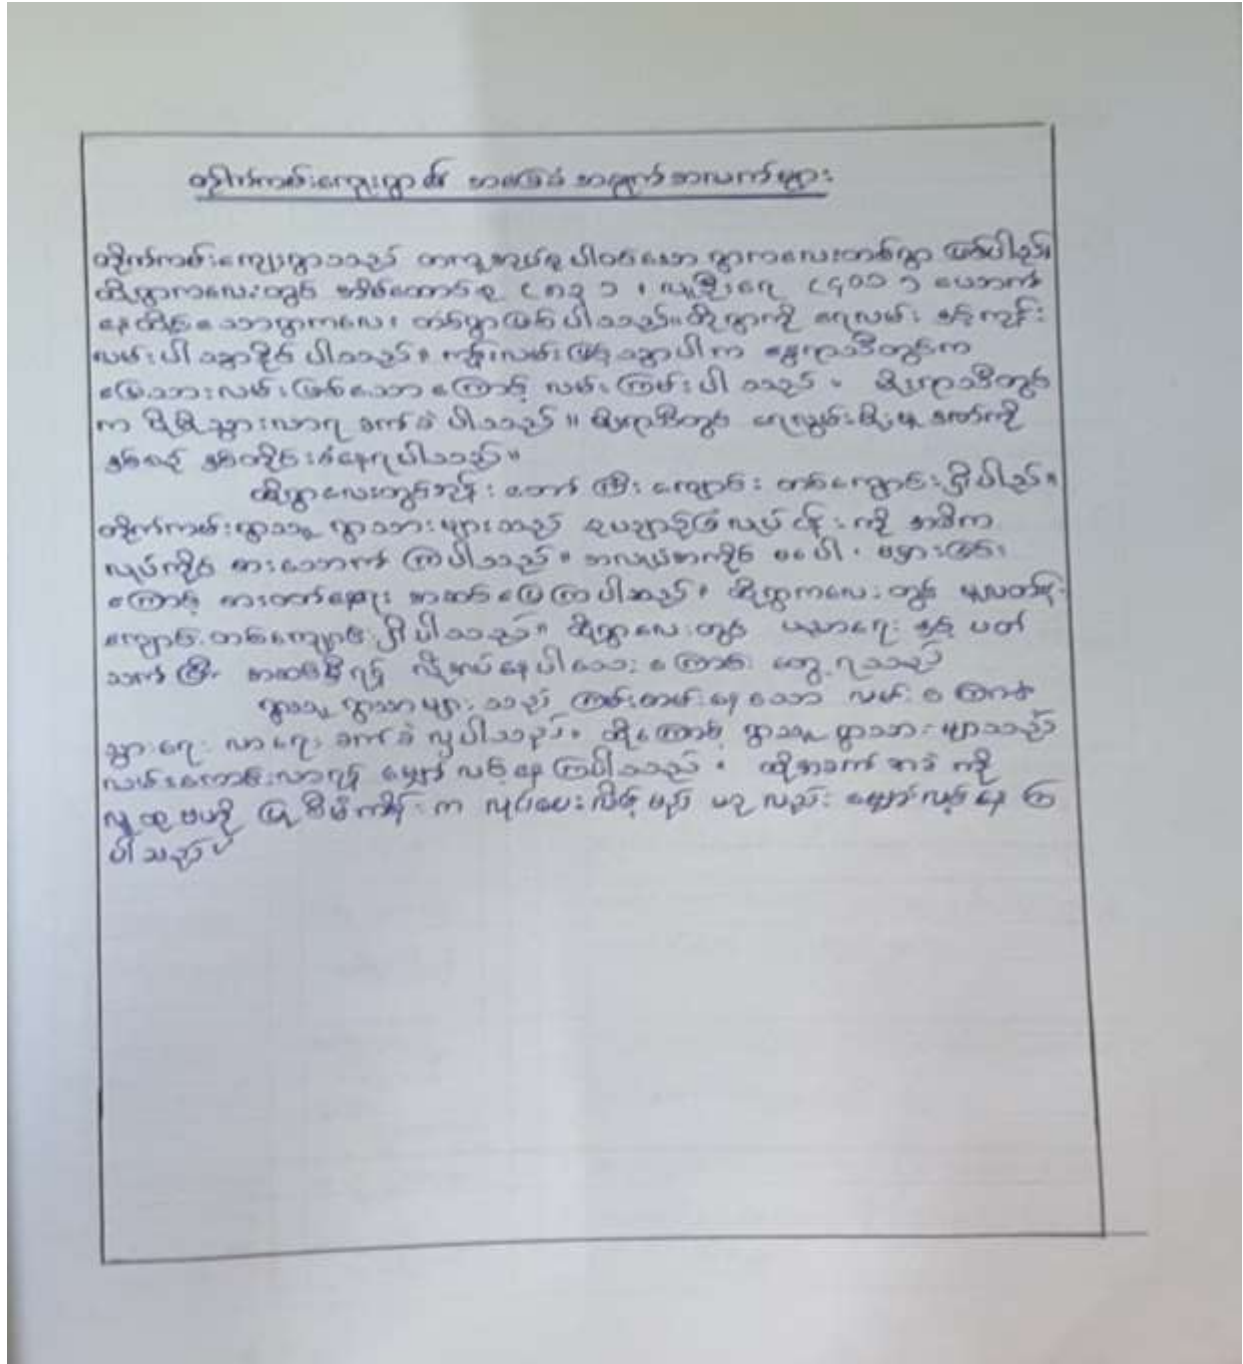 တိုက်ကမ်းကျေးရွာ၏ အခြေခံ အချက်အလက်များ
တိုက်ကမ်းကျေးရွာသည် တကူအုပ်စု ပါဝင်သော ရွာကလေးတစ်ရွာ ဖြစ်ပါသည်။
ထိုရွာကလေးတွင် အိမ်ထောင်စု လူဦးရေ ယောက်
နေထိုင်သောရွာကလေး တစ်ရွာဖြစ်ပါသည်။ ထိုရွာကို ရေလမ်း နှင့်ကုန်း
လမ်းပါ သွားနိုင် ပါသည်။ ကုန်းလမ်းဖြင့် သွားပါက နွေရာသီတွင်က
မြေသားလမ်းဖြစ်သော ကြောင့် လမ်းကြမ်းပါ သည်။ မိုးရာသီတွင်
က ပိုမိုသွားလာရ ခက်ခဲ ပါသည်။ မိုးရာသီတွင် ရေလွှမ်းမိုးမှု ဒဏ်ကို
နှစ်စဉ် နှစ်တိုင်းခံနေရပါသည်။
ထိုရွာလေးတွင်ဘုန်း တော် ကြီး ကျောင်း တစ်ကျောင်းရှိပါသည်။
တိုက်ကမ်းရွာသူ ရွာသားများသည် လုပ် ငန်းကို အဓိက
လုပ်ကိုင် စားသောက် ကြပါသည်။ အလုပ်အကိုင် မပေါ များခြင်း
ကြောင့် စားဝတ်နေရေး အဆင်မပြေကြပါသည်။ ထိုရွာကလေးတွင် မူလတန်း
ကျောင်းတစ်ကျောင်းရှိပါသည်။ ထိုရွာလေးတွင် ပညာရေး နှင့် ပတ်
သက်ပြီး အဆင့်မြှင့်ရန် လိုအပ်နေပါသေးကြောင်း တွေ့ရသည်
ရွာသူ ရွာသားများသည် ကြမ်းတမ်းနေသော လမ်းကြောင့်
သွားရေး လာရေး ခက်ခဲလှပါသည်။ ထိုကြောင့် ရွာသူ ရွာသားများသည်
လမ်းကောင်းလာရန် မျှော်လင့်နေကြပါသည်။ ထိုအခက်အခဲကို
လူထုဗဟိုပြုစီမံကိန်းက လုပ်ပေးလိမ့်မည် ဟုလည်း မျှော်လင့်နေ ကြ
ပါသည်။